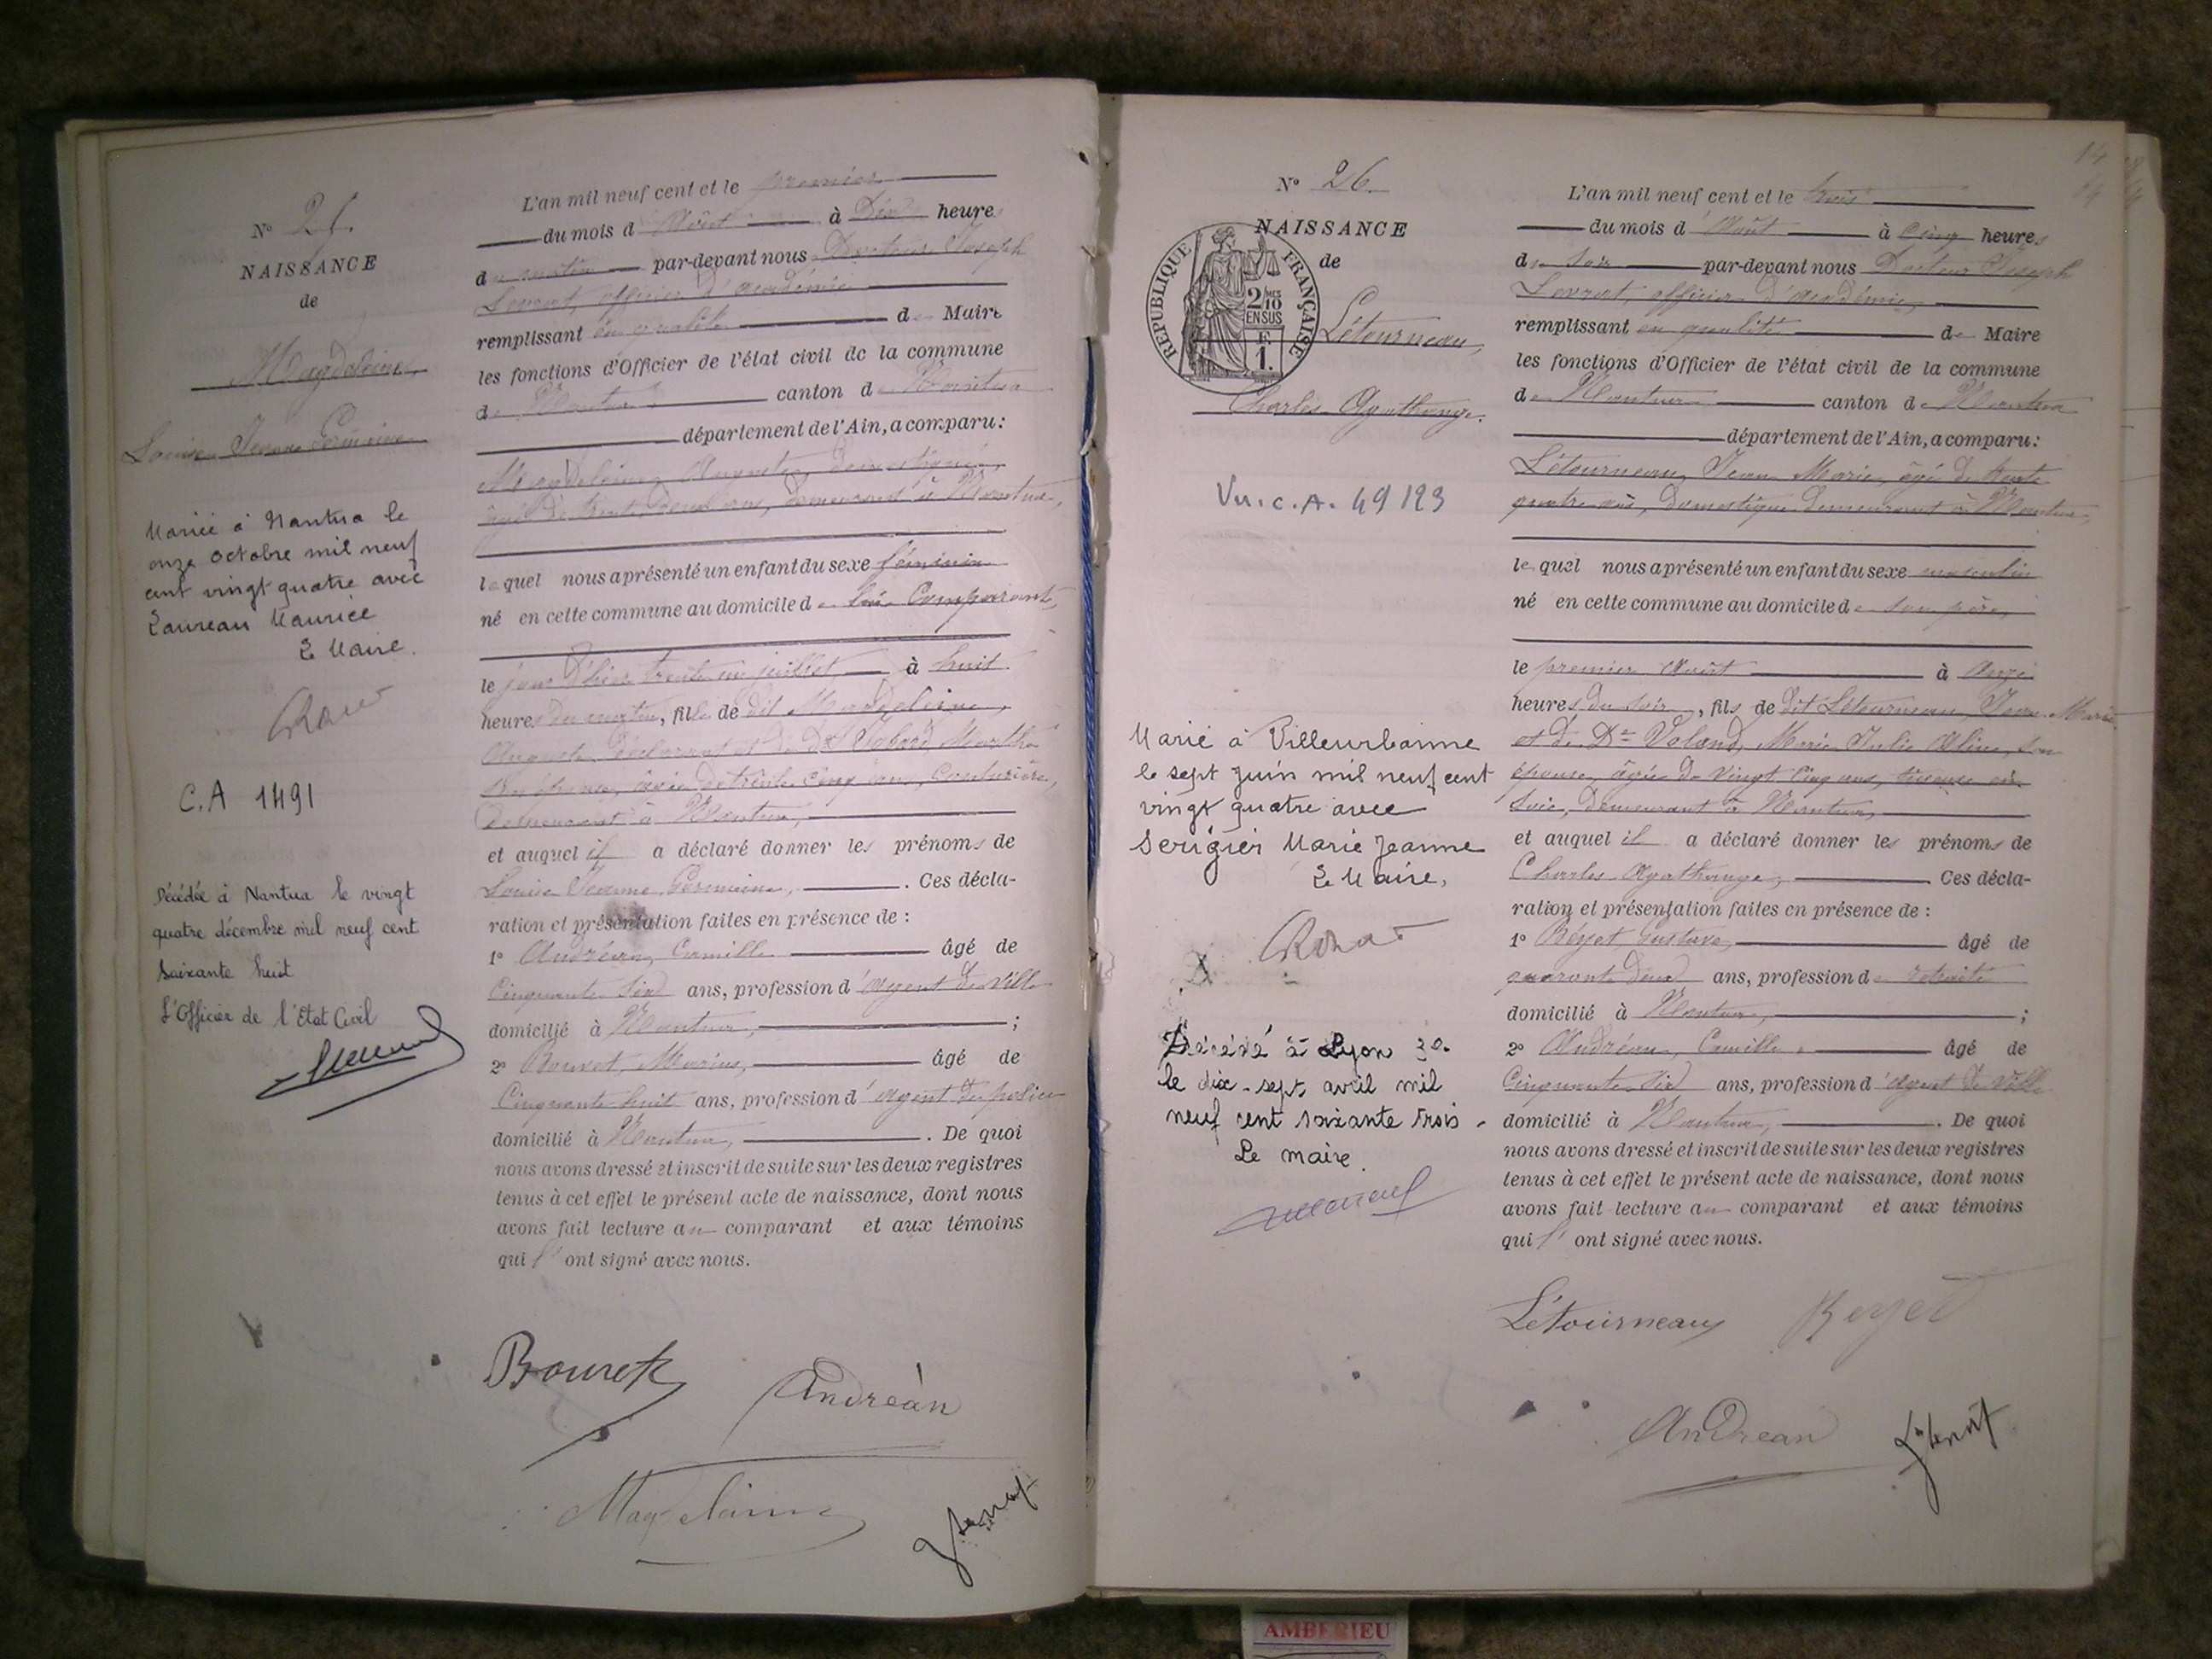 N° 25.
NAISSANCE
de
Magdeleine
Louise Jeanne Germaine
Mariée à Nantua le
onze octobre mil neuf
cent vingt quatre avec
Laureau Maurice
Le Maire.
C.A 1491
Décédée à Nantua le vingt
quatre décembre mil neuf cent
soixante huit
L'Officier de l'Etat Civil
L'an mil neuf cent et le premier
du mois d'Août à Dix heures
du matin par-devant nous Docteur Joseph
officier d'académie
remplissant en qualité de Maire
les fonctions d'Officier de l'état civil de la commune
de Nantua canton de Nantua
département de l'Ain, a comparu:
Magdeleine Auguste, domestique,
âgé de trente deux ans, demeurant à Nantua,
lequel nous a présenté un enfant du sexe féminin
né en cette commune au domicile de lui Comparant,
le jour d'hier trente un juillet à huit
heures du matin, fille de dit Magdeleine,
Auguste, déclarant et de Dᵉ Marthe
son épouse, âgée de trente cinq ans, couturière,
demeurant à Nantua,
et auquel il a déclaré donner les prénoms de
Louise Jeanne Germaine, . Ces décla-
ration et présentation faites en présence de :
1° Andréan, Camille âgé de
Cinquante six ans, profession d'agent de ville
domicilié à Nantua, ;
2° Bouvet, Marius, âgé de
Cinquante huit ans, profession d'agent de police
domicilié à Nantua, . De quoi
nous avons dressé et inscrit de suite sur les deux registres
tenus à cet effet le présent acte de naissance, dont nous
avons fait lecture au comparant et aux témoins
qui l' ont signé avec nous.
Andréan
Magdelaine
N° 26.
NAISSANCE
de
REPUBLIQUE FRANÇAISE
2/10 MES
EN SUS
F.
1.
Létourneau,
Charles Agathange.
Vu. C.A. 49123
Marié à Villeurbanne
le sept juin mil neuf cent
vingt quatre avec
Serigier Marie Jeanne
Le Maire,
Décédé à Lyon 3e
le dix-sept avril mil
neuf cent soixante trois.
Le maire.
14
L'an mil neuf cent et le trois
du mois d'Août à Cinq heures
du soir par-devant nous Docteur Joseph
officier d'académie,
remplissant en qualité de Maire
les fonctions d'Officier de l'état civil de la commune
de Nantua canton de Nantua
département de l'Ain, a comparu:
Létourneau, Jean Marie, âgé de trente
quatre ans, domestique demeurant à Nantua,
lequel nous a présenté un enfant du sexe masculin
né en cette commune au domicile de son père,
le premier Août à onze
heures du soir, fils de dit Létourneau, Jean-Marie
et de Dᵉ Voland, Marie Julie Aline, son
épouse, âgée de vingt cinq ans, tisseuse en
soie, demeurant à Nantua,
et auquel il a déclaré donner les prénoms de
Charles Agathange, Ces décla-
ration et présentation faites en présence de :
1° Gustave, âgé de
quarante deux ans, profession de retraité
domicilié à Nantua, ;
2° Andréan, Camille, âgé de
Cinquante six ans, profession d'agent de ville
domicilié à Nantua, . De quoi
nous avons dressé et inscrit de suite sur les deux registres
tenus à cet effet le présent acte de naissance, dont nous
avons fait lecture au comparant et aux témoins
qui l' ont signé avec nous.
Létourneau
Andrean
AMBERIEU